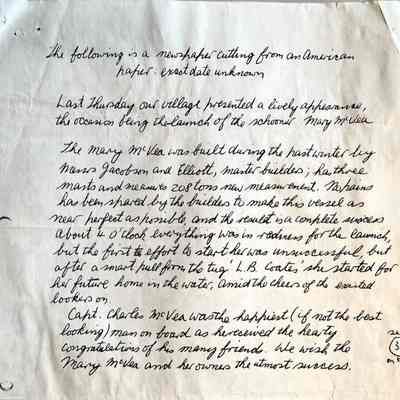 The following is a newspaper cutting from an American
paper. exact date unknown
Last Thursday our village presented a lively appearance,
the occasion being the launch of the schooner Mary McVea
The Mary McVea was built during the past winter by
Messrs Jacobson and Elliott, master builders; has three
masts and measures 208 tons new measurement. No pains
has been spared by the builders to make this vessel as
near perfect as possible, and the result is a complete success
about 4 O'clock everything was in readness for the launch,
but the first effort to start her was unsuccessful, but
after a smart pull from the tug 'I.B. Coates,' she started for
her future home in the water, amid the cheers of the excited
lookers on.
Capt. Charles McVea was the happiest (if not the best
looking) man on board as he received the hearty
congratulations of his many friends. We wish the
Mary McVea and her owners the utmost success.